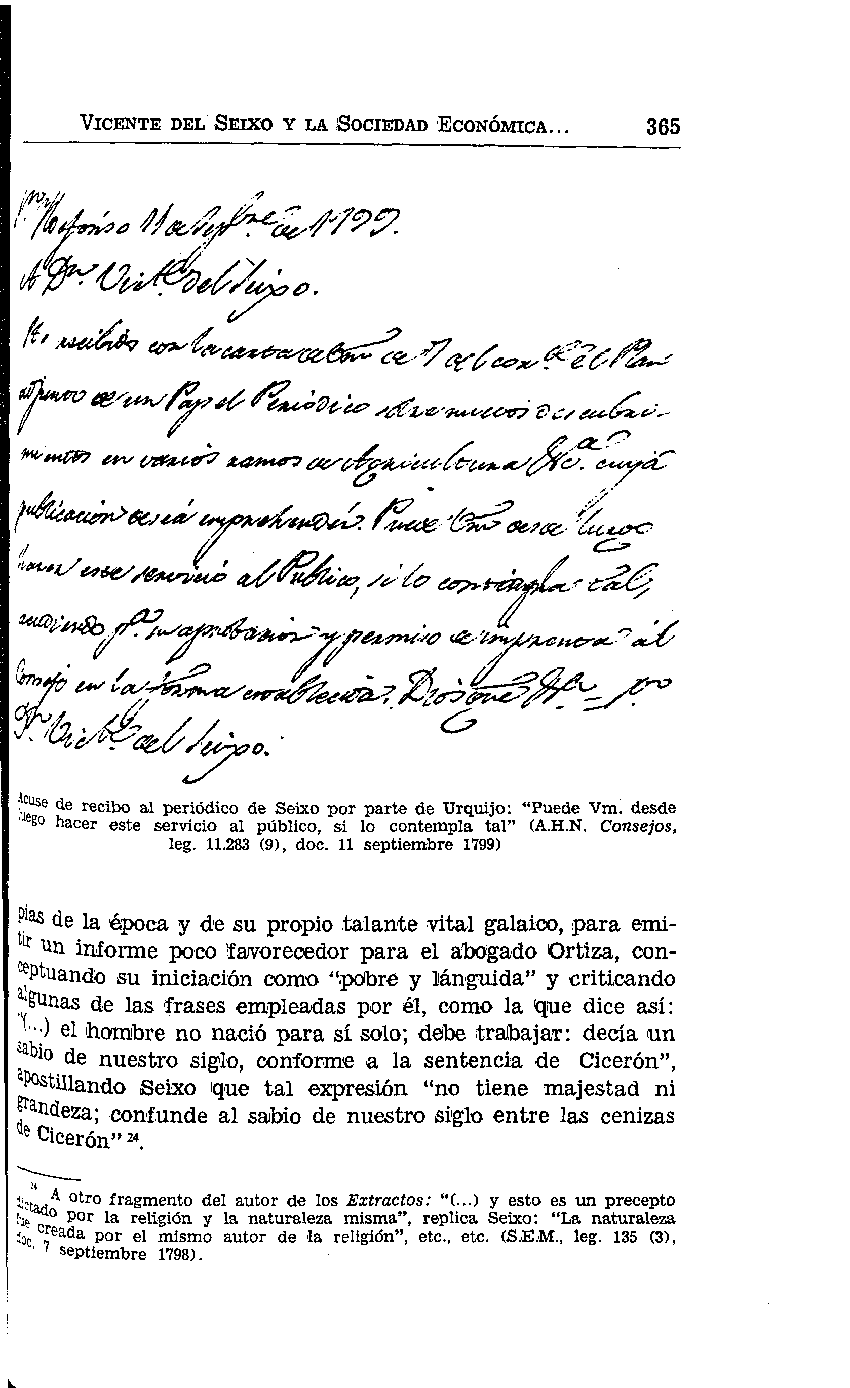 VICENTE DEL SEIXO Y LA SOCIEDAD ECONÓMICA... 365
Yldefonso 11 de Sepbre. de 1799.
A Dn. Victe. del Seixo.
He recibido con la carta de Vm de 7 del corrte. el Plan
de un Papel Periódico sobre nuevos descubri-
mientos en varios ramos de Agricultura &ca. cuyá
publicacion deseá emprehendér. Puede Vm desde luego
hacer este servició al Publico, si lo contempla tal,
acudiendo pa. su aprobacion y permiso de imprenta ál
Consejo en la forma establecida. Dios gue &a =
Dn. Victe. del Seixo.
Acuse de recibo al periódico de Seixo por parte de Urquijo: "Puede Vm. desde
luego hacer este servicio al público, si lo contempla tal" (A.H.N. Consejos,
leg. 11.283 (9), doc. 11 septiembre 1799)
pias de la época y de su propio talante vital galaico, para emi-
tir un informe poco favorecedor para el abogado Ortiza, con-
ceptuando su iniciación como "pobre y lánguida" y criticando
algunas de las frases empleadas por él, como la que dice así:
"(...) el hombre no nació para sí solo; debe trabajar: decía un
sabio de nuestro siglo, conforme a la sentencia de Cicerón",
apostillando Seixo que tal expresión "no tiene majestad ni
grandeza; confunde al sabio de nuestro siglo entre las cenizas
de Cicerón" 24.
24 A otro fragmento del autor de los Extractos: "(...) y esto es un precepto
dictado por la religión y la naturaleza misma", replica Seixo: "La naturaleza
fue creada por el mismo autor de la religión", etc., etc. (S.E.M., leg. 135 (3),
doc. 7 septiembre 1798).